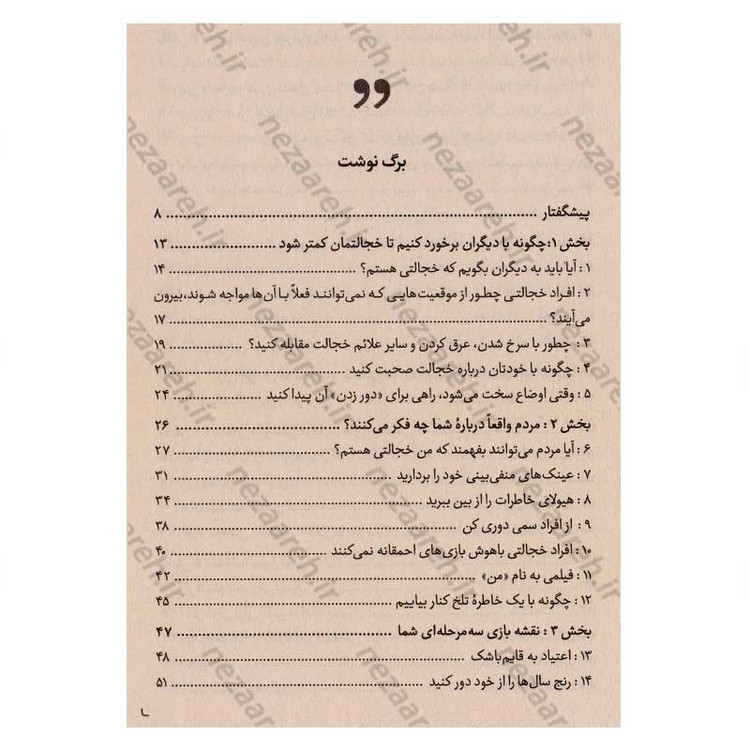 برگ نوشت
پیشگفتار ........ ۸
بخش ۱:چگونه با دیگران برخورد کنیم تا خجالتمان کمتر شود ........ ۱۳
۱ : آیا باید به دیگران بگویم که خجالتی هستم؟ ........ ۱۴
۲ : افراد خجالتی چطور از موقعیت‌هایی که نمی‌توانند فعلاً با آن‌ها مواجه شوند،بیرون
می‌آیند؟ ........ ۱۷
۳ : چطور با سرخ شدن، عرق کردن و سایر علائم خجالت مقابله کنید؟ ........ ۱۹
۴ : چگونه با خودتان درباره خجالت صحبت کنید ........ ۲۱
۵ : وقتی اوضاع سخت می‌شود، راهی برای «دور زدن» آن پیدا کنید ........ ۲۴
بخش ۲ : مردم واقعاً دربارهٔ شما چه فکر می‌کنند؟ ........ ۲۶
۶ : آیا مردم می‌توانند بفهمند که من خجالتی هستم؟ ........ ۲۷
۷ : عینک‌های منفی‌بینی خود را بردارید ........ ۳۱
۸ : هیولای خاطرات را از بین ببرید ........ ۳۴
۹ : از افراد سمی دوری کن ........ ۳۸
۱۰ : افراد خجالتی باهوش بازی‌های احمقانه نمی‌کنند ........ ۴۰
۱۱ : فیلمی به نام «من» ........ ۴۲
۱۲ : چگونه با یک خاطرهٔ تلخ کنار بیاییم ........ ۴۵
بخش ۳ : نقشه بازی سه‌مرحله‌ای شما ........ ۴۷
۱۳ : اعتیاد به قایم‌باشک ........ ۴۸
۱۴ : رنج سال‌ها را از خود دور کنید ........ ۵۱
nezaareh.ir